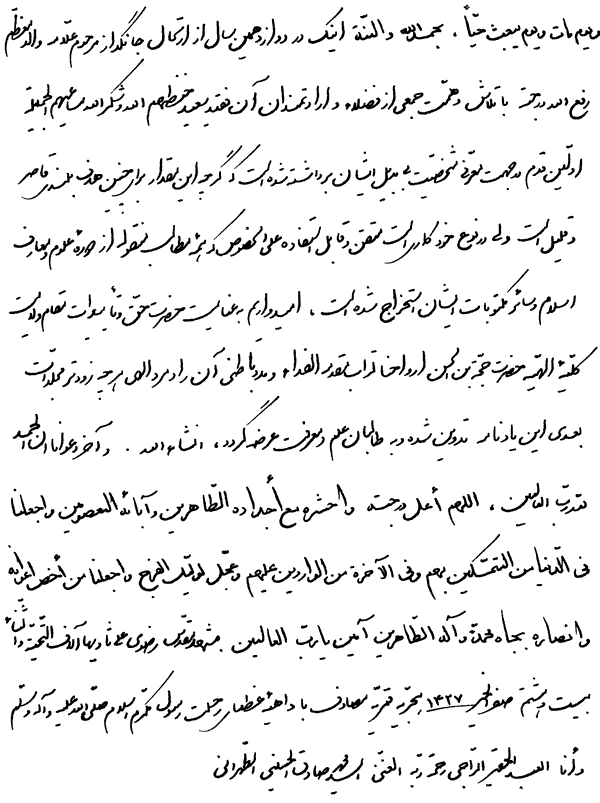 و یوم مات و یوم یبعث حیّاً . بحمد الله و المنّة اینک در دوازدهمین سال از ارتحال جانگداز مرحوم علّامه والد معظّم
رفع الله درجته با تلاش و همّت جمعی از فضلاء و ارادتمندان آن فقید سعید حفظهم الله و شکر الله مساعیهم الجمیلة
اوّلین قدم در جهت معرّفی شخصیّت بی بدیل ایشان برداشته شده است که گرچه این مقدار برای چنین هدف بلندی قاصر
و قلیل است ولی در نوع خود کاری است متقن و قابل استفاده علی الخصوص که همۀ مطالب منقوله از دورۀ علوم و معارف
اسلام و سائر مکتوبات ایشان استخراج شده است ، امیدواریم به عنایت حضرت حقّ و تأییدات مقام ولایت
کلّیّۀ الهیّه حضرت حجّة بن الحسن ارواحنا لتراب مقدمه الفداء و مدد باطنی آن رادمرد الهی هر چه زودتر مجلّدات
بعدی این یادنامه تدوین شده و به طالبان علم و معرفت عرضه گردد ، انشاءالله . و آخر دعوانا ان الحمد
لله ربّ العالمین ، اللهم أعل درجته واحشره مع أجداده الطّاهرین و آبائه المعصومین واجعلنا
فی الدّنیا من المتمسّکین بهم و فی الآخرة من الواردین علیهم و عجّل لولیّک الفرج واجعلنا من أخصّ أعوانه
و انصاره بجاه محمّد و آله الطّاهرین آمین یا ربّ العالمین . مشهد مقدّس رضوی علی ثاویها آلاف التّحیّة والثّناء
بیست و هشتم صفر الخیر ۱۴۲۷ هجریّه قمریّه مصادف با داهیۀ عظمای رحلت رسول مکرّم اسلام صلّی الله علیه و آله و سلّم
و أنا العبد الحقیر الرّاجی رحمة ربّه الغنیّ السّید محمّد صادق الحسینی الطّهرانی